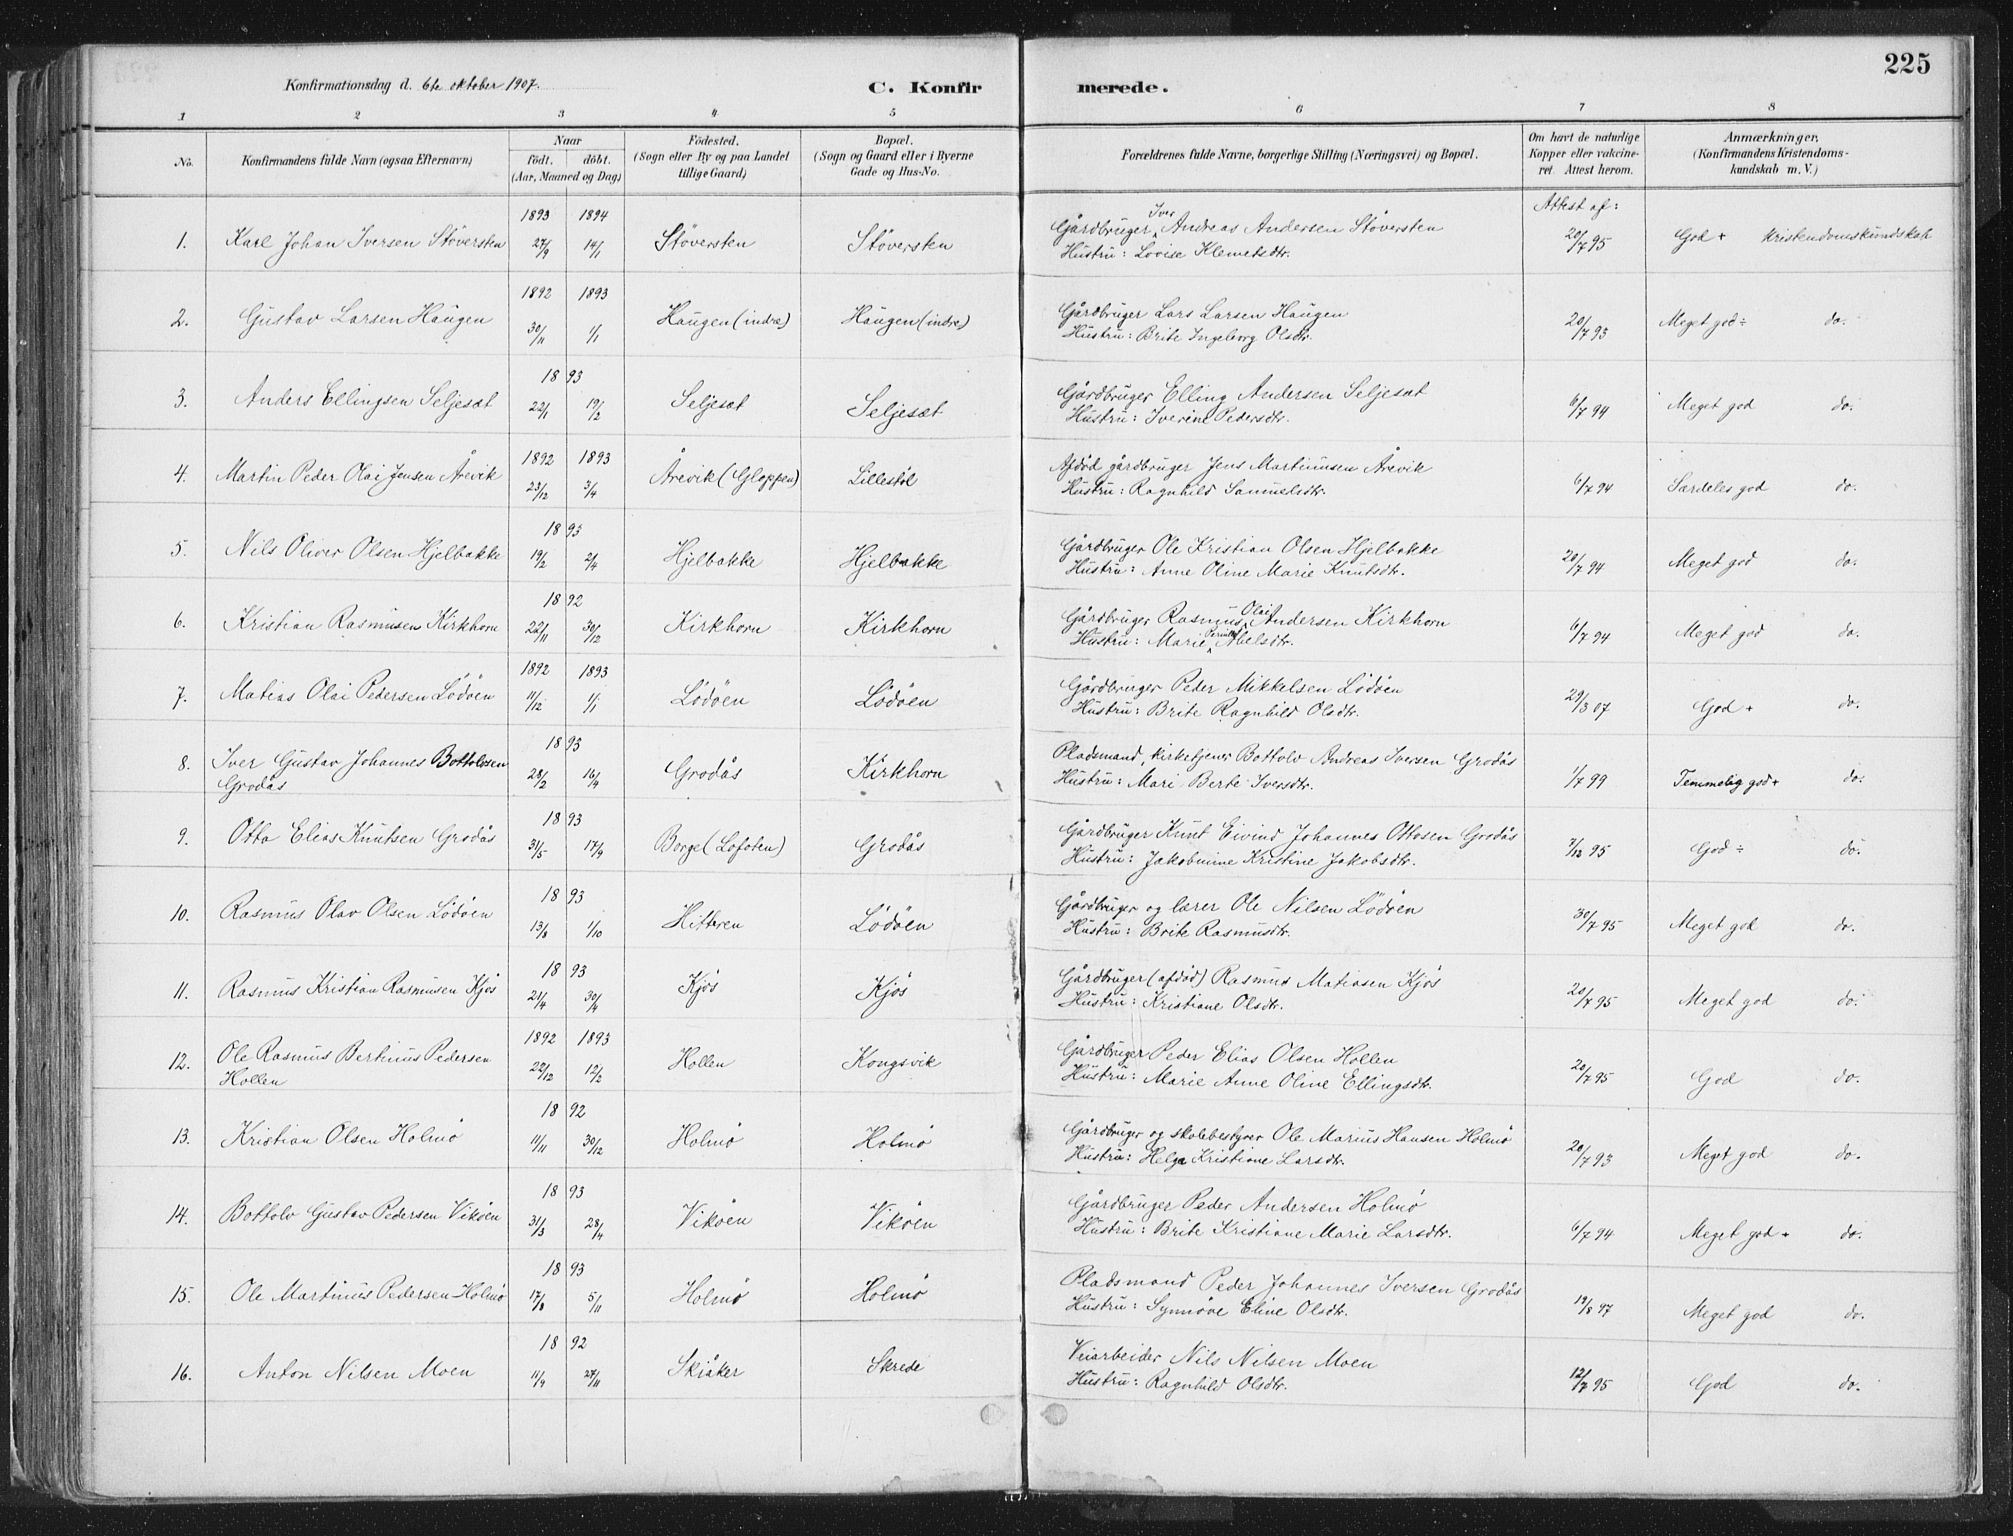 225
Konfirmationsdag d. 6te oktober 1907.
C. Konfirmerede.
1 2 3 4 5 6 7 8
No.
Konfirmandens fulde Navn (ogsaa Efternavn)
Naar
födt. döbt.
(Aar, Maaned og Dag)
Födested.
(Sogn eller By og paa Landet
tillige Gaard)
Bopæl.
(Sogn og Gaard eller i Byerne
Gade og Hus-No.
Forældrenes fulde Navne, borgerlige Stilling (Næringsvei) og Bopæl.
Om havt de naturlige
Kopper eller vakcine-
ret. Attest herom.
Anmærkninger,
(Konfirmandens Kristendoms-
kundskab m. V.)
Attest af:
1. Karl Johan Iversen Støversten 1893 27/9 1894 14/1 Støversten Støversten Gårdbruger Iver Andreas Andersen Støversten 20/7 95 God + Kristendomskundskab
Hustru: Lovise Klemetsdtr.
2. Gustav Larsen Haugen 1892 30/11 1893 1/1 Haugen (indre) Haugen (indre) Gårdbruger Lars Larsen Haugen 20/7 93 Meget god ÷ do.
Hustru: Brite Ingeborg Olsdtr.
3. Anders Ellingsen Seljeset 1893 22/1 19/2 Seljeset Seljeset Gårdbruger Elling Andersen Seljeset 6/7 94 Meget god do.
Hustru: Iverine Pedersdtr.
4. Martin Peder Olai Jensen Årevik 1892 23/12 1893 3/4 Årevik (Gloppen) Lillestøl Afdød gårdbruger Jens Martinusen Årevik 6/7 94 Særdeles god do.
Hustru: Ragnhild Samuelsdtr.
5. Nils Oliver Olsen Hjelbakke 1893 19/2 2/4 Hjelbakke Hjelbakke Gårdbruger Ole Kristian Olsen Hjelbakke 20/7 94 Meget god do.
Hustru: Anne Oline Marie Knutsdtr.
6. Kristian Rasmusen Kirkhorn 1892 22/11 30/12 Kirkhorn Kirkhorn Gårdbruger Rasmus Olai Andersen Kirkhorn 6/7 94 Meget god do.
Hustru: Marie Pernille Abelsdtr.
7. Matias Olai Pedersen Lødøen 1892 11/12 1893 1/1 Lødøen Lødøen Gårdbruger Peder Mikkelsen Lødøen 29/3 07 God + do.
Hustru: Brite Ragnhild Olsdtr.
8. Iver Gustav Johannes Bottolvsen 1893 28/2 16/4 Grodås Kirkhorn Pladsmand, kirketjener Bottolv Andreas Iversen Grodås 1/7 99 Temmelig god + do.
Grodås Hustru: Mari Berte Iversdtr.
9. Otto Elias Knutsen Grodås 1893 31/5 17/9 Borge (Lofoten) Grodås Gårdbruger Knut Eivind Johannes Ottosen Grodås 7/12 95 God ÷ do.
Hustru: Jakobmine Kristine Jakobsdtr.
10. Rasmus Olav Olsen Lødøen 1893 13/8 1/10 Hitteren Lødøen Gårdbruger og lærer Ole Nilsen Lødøen 30/7 95 Meget god do.
Hustru: Brite Rasmusdtr.
11. Rasmus Kristian Rasmusen Kjøs 1893 21/4 30/4 Kjøs Kjøs Gårdbruger (afdød) Rasmus Matiasen Kjøs 20/7 95 Meget god do.
Hustru: Kristiane Olsdtr.
12. Ole Rasmus Bertinus Pedersen 1892 22/12 1893 12/2 Hollen Kongsvik Gårdbruger Peder Elias Olsen Hollen 20/7 95 God do.
Hollen Hustru: Marie Anne Oline Ellingsdtr.
13. Kristian Olsen Holmø 1892 11/11 30/12 Holmø Holmø Gårdbruger og skolebestyrer Ole Marius Hansen Holmø 20/7 93 Meget god do.
Hustru: Helga Kristiane Larsdtr.
14. Bottolv Gustav Pedersen Vikøen 1893 31/3 28/4 Vikøen Vikøen Gårdbruger Peder Andersen Holmø 6/7 94 Meget god + do.
Hustru: Brite Kristiane Marie Larsdtr.
15. Ole Martinus Pedersen Holmø 1893 17/8 5/11 Holmø Holmø Pladsmand Peder Johannes Iversen Grodås 19/8 97 Meget god do.
Hustru: Synnøve Eline Olsdtr.
16. Anton Nilsen Moen 1892 11/9 27/11 Skiåker Skrede Veiarbeider Nils Nilsen Moen 12/7 95 God do.
Hustru: Ragnhild Olsdtr.